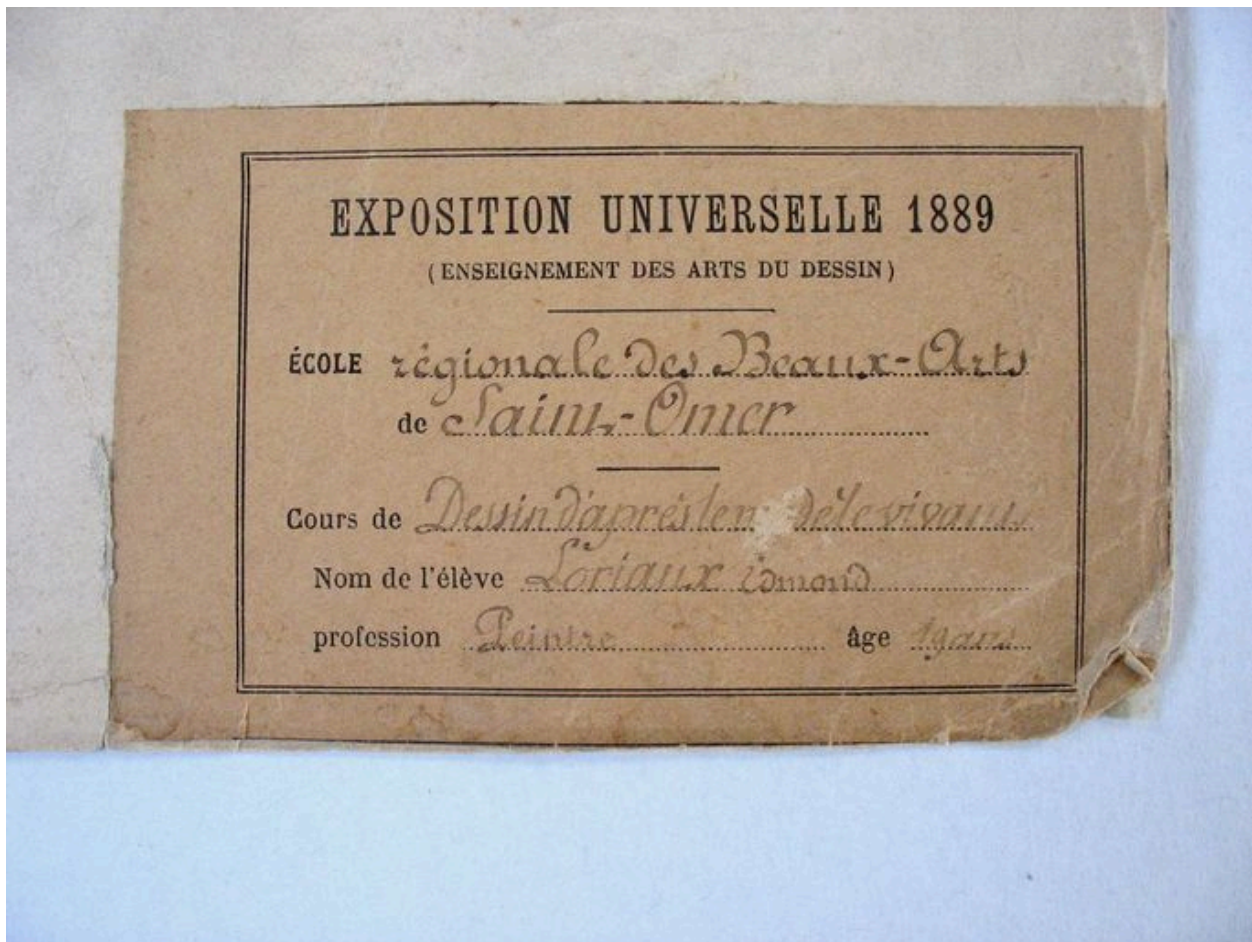 EXPOSITION UNIVERSELLE 1889
(ENSEIGNEMENT DES ARTS DU DESSIN)
ÉCOLE régionale des Beaux-Arts
de Saint-Omer
Cours de Dessin d'après le m dèle vivant
Nom de l'élève Loriaux Edmond
profession Peintre âge 19 ans